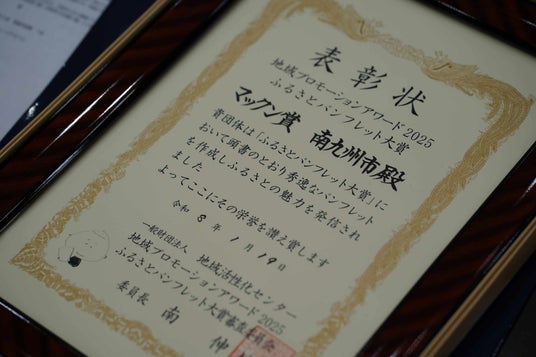 表彰状
地域プロモーションアワード2025
ふるさとパンフレット大賞
マックン賞 南九州市殿
貴団体は「ふるさとパンフレット大賞」に
おいて頭書のとおり秀逸なパンフレット
を作成しふるさとの魅力を発信され
ました
よってここにその栄誉を讃え賞します
令和8年1月19日
一般財団法人 地域活性化センター
地域プロモーションアワード2025
ふるさとパンフレット大賞審査委員会
委員長 南 伸